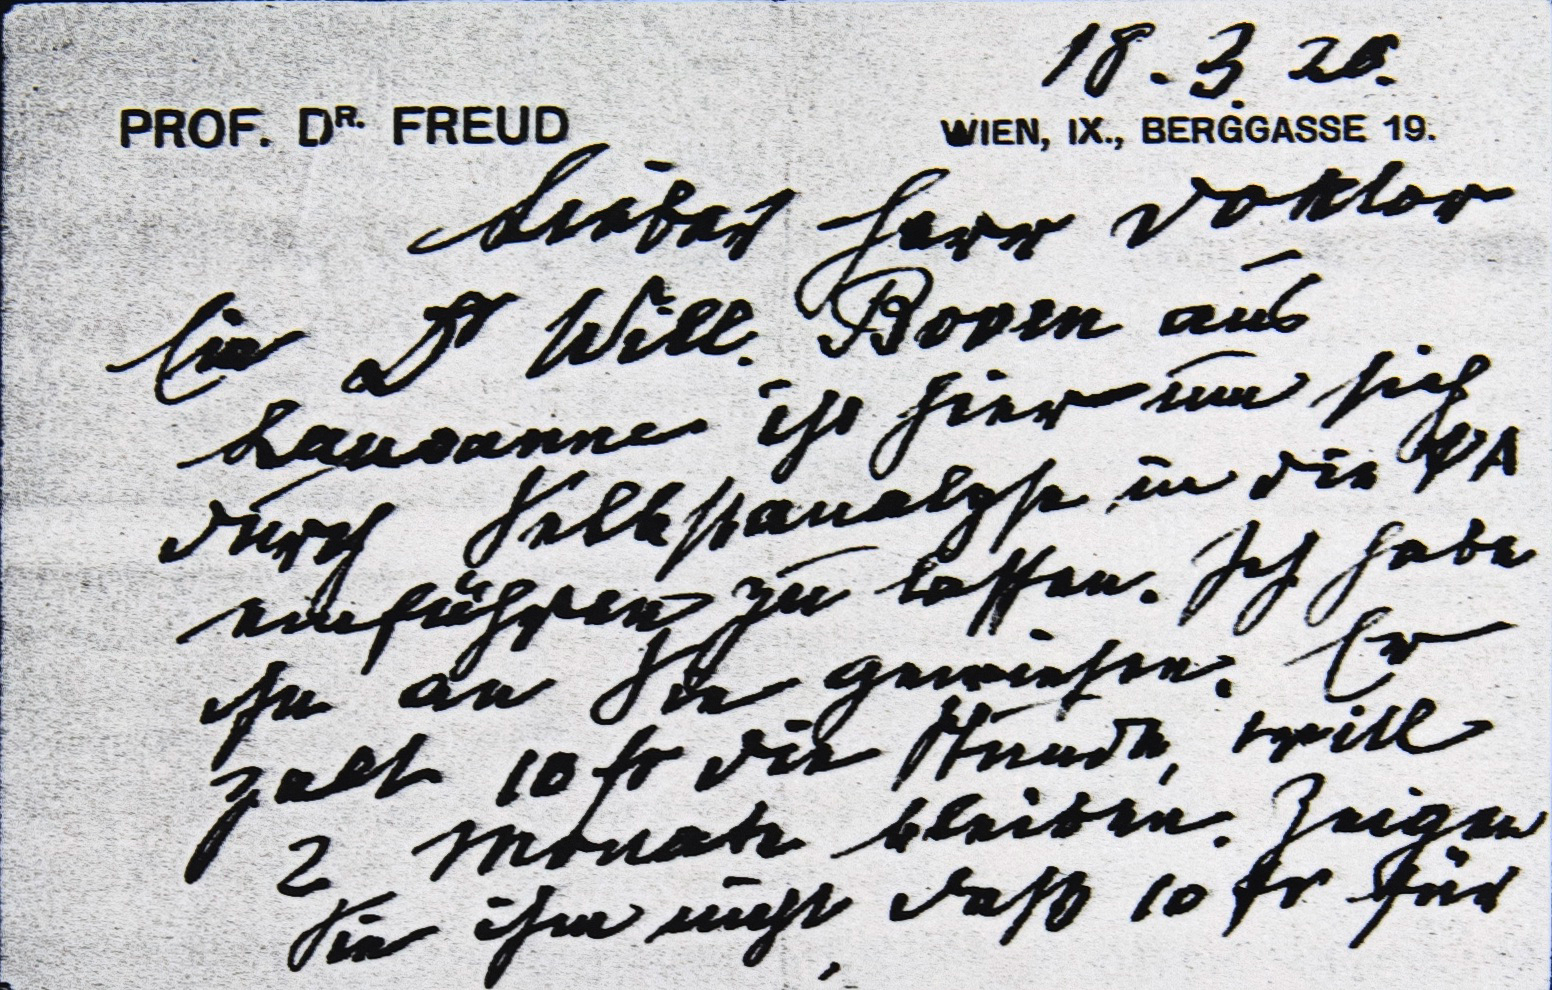 18. 3. 20.
PROF. DR. FREUD WIEN, IX., BERGGASSE 19.
Lieber Herr Doktor
Ein Dr Will. Boven aus
Lausanne ist hier um sich
durch Selbstanalyse in die ΨA
einführen zu lassen. Ich habe
ihn an Sie gewiesen. Er
zalt 10 fr die Stunde, will
2 Monate bleiben. Zeigen
Sie ihm nicht, daß 10 fr für